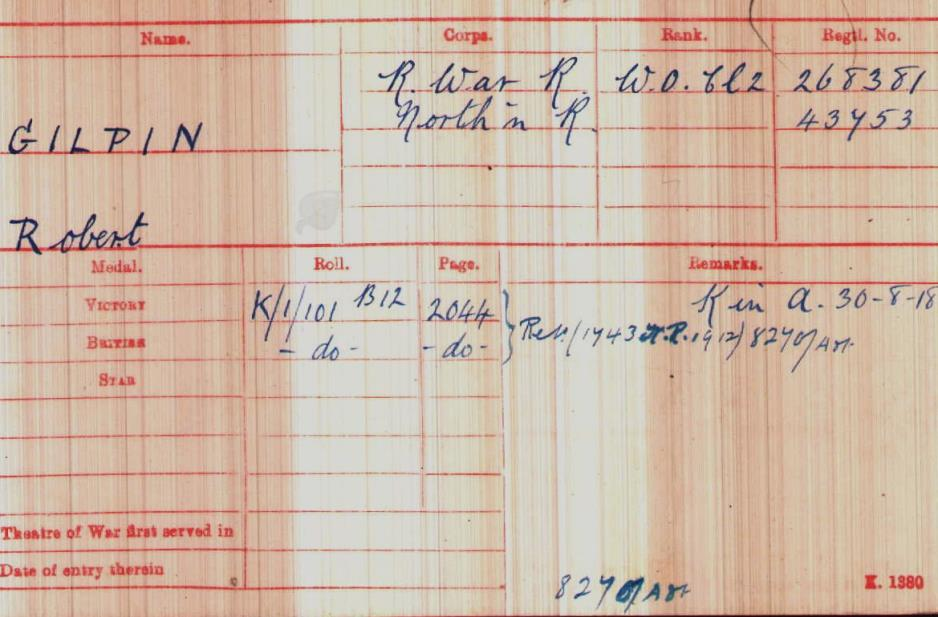 Name. Corps. Rank. Regtl. No.
R. War R. W.O. Cl 2 268381
GILPIN North'n R. 43753
Robert
Medal. Roll. Page. Remarks.
VICTORY K/1/101 B12 2044 K in A. 30-8-18
BRITISH - do - - do -
STAR
Theatre of War first served in
Date of entry therein
K. 1380